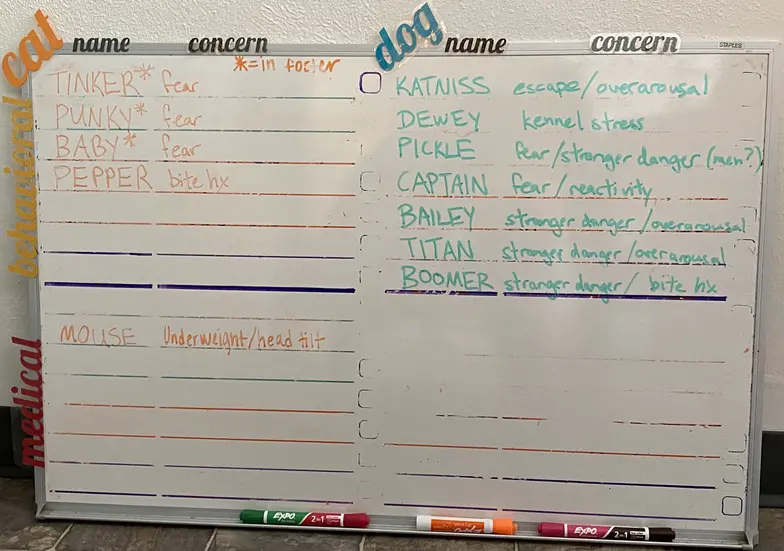 cat
name concern
*=in foster
behavioral
TINKER* fear
PUNKY* fear
BABY* fear
PEPPER bite hx
medical
MOUSE Underweight/head tilt
dog
name concern
STAPLES
KATNISS escape/overarousal
DEWEY kennel stress
PICKLE fear/stranger danger (men?)
CAPTAIN fear/reactivity
BAILEY stranger danger/overarousal
TITAN stranger danger/overarousal
BOOMER stranger danger/ bite hx
EXPO 2in1
EXPO 2in1